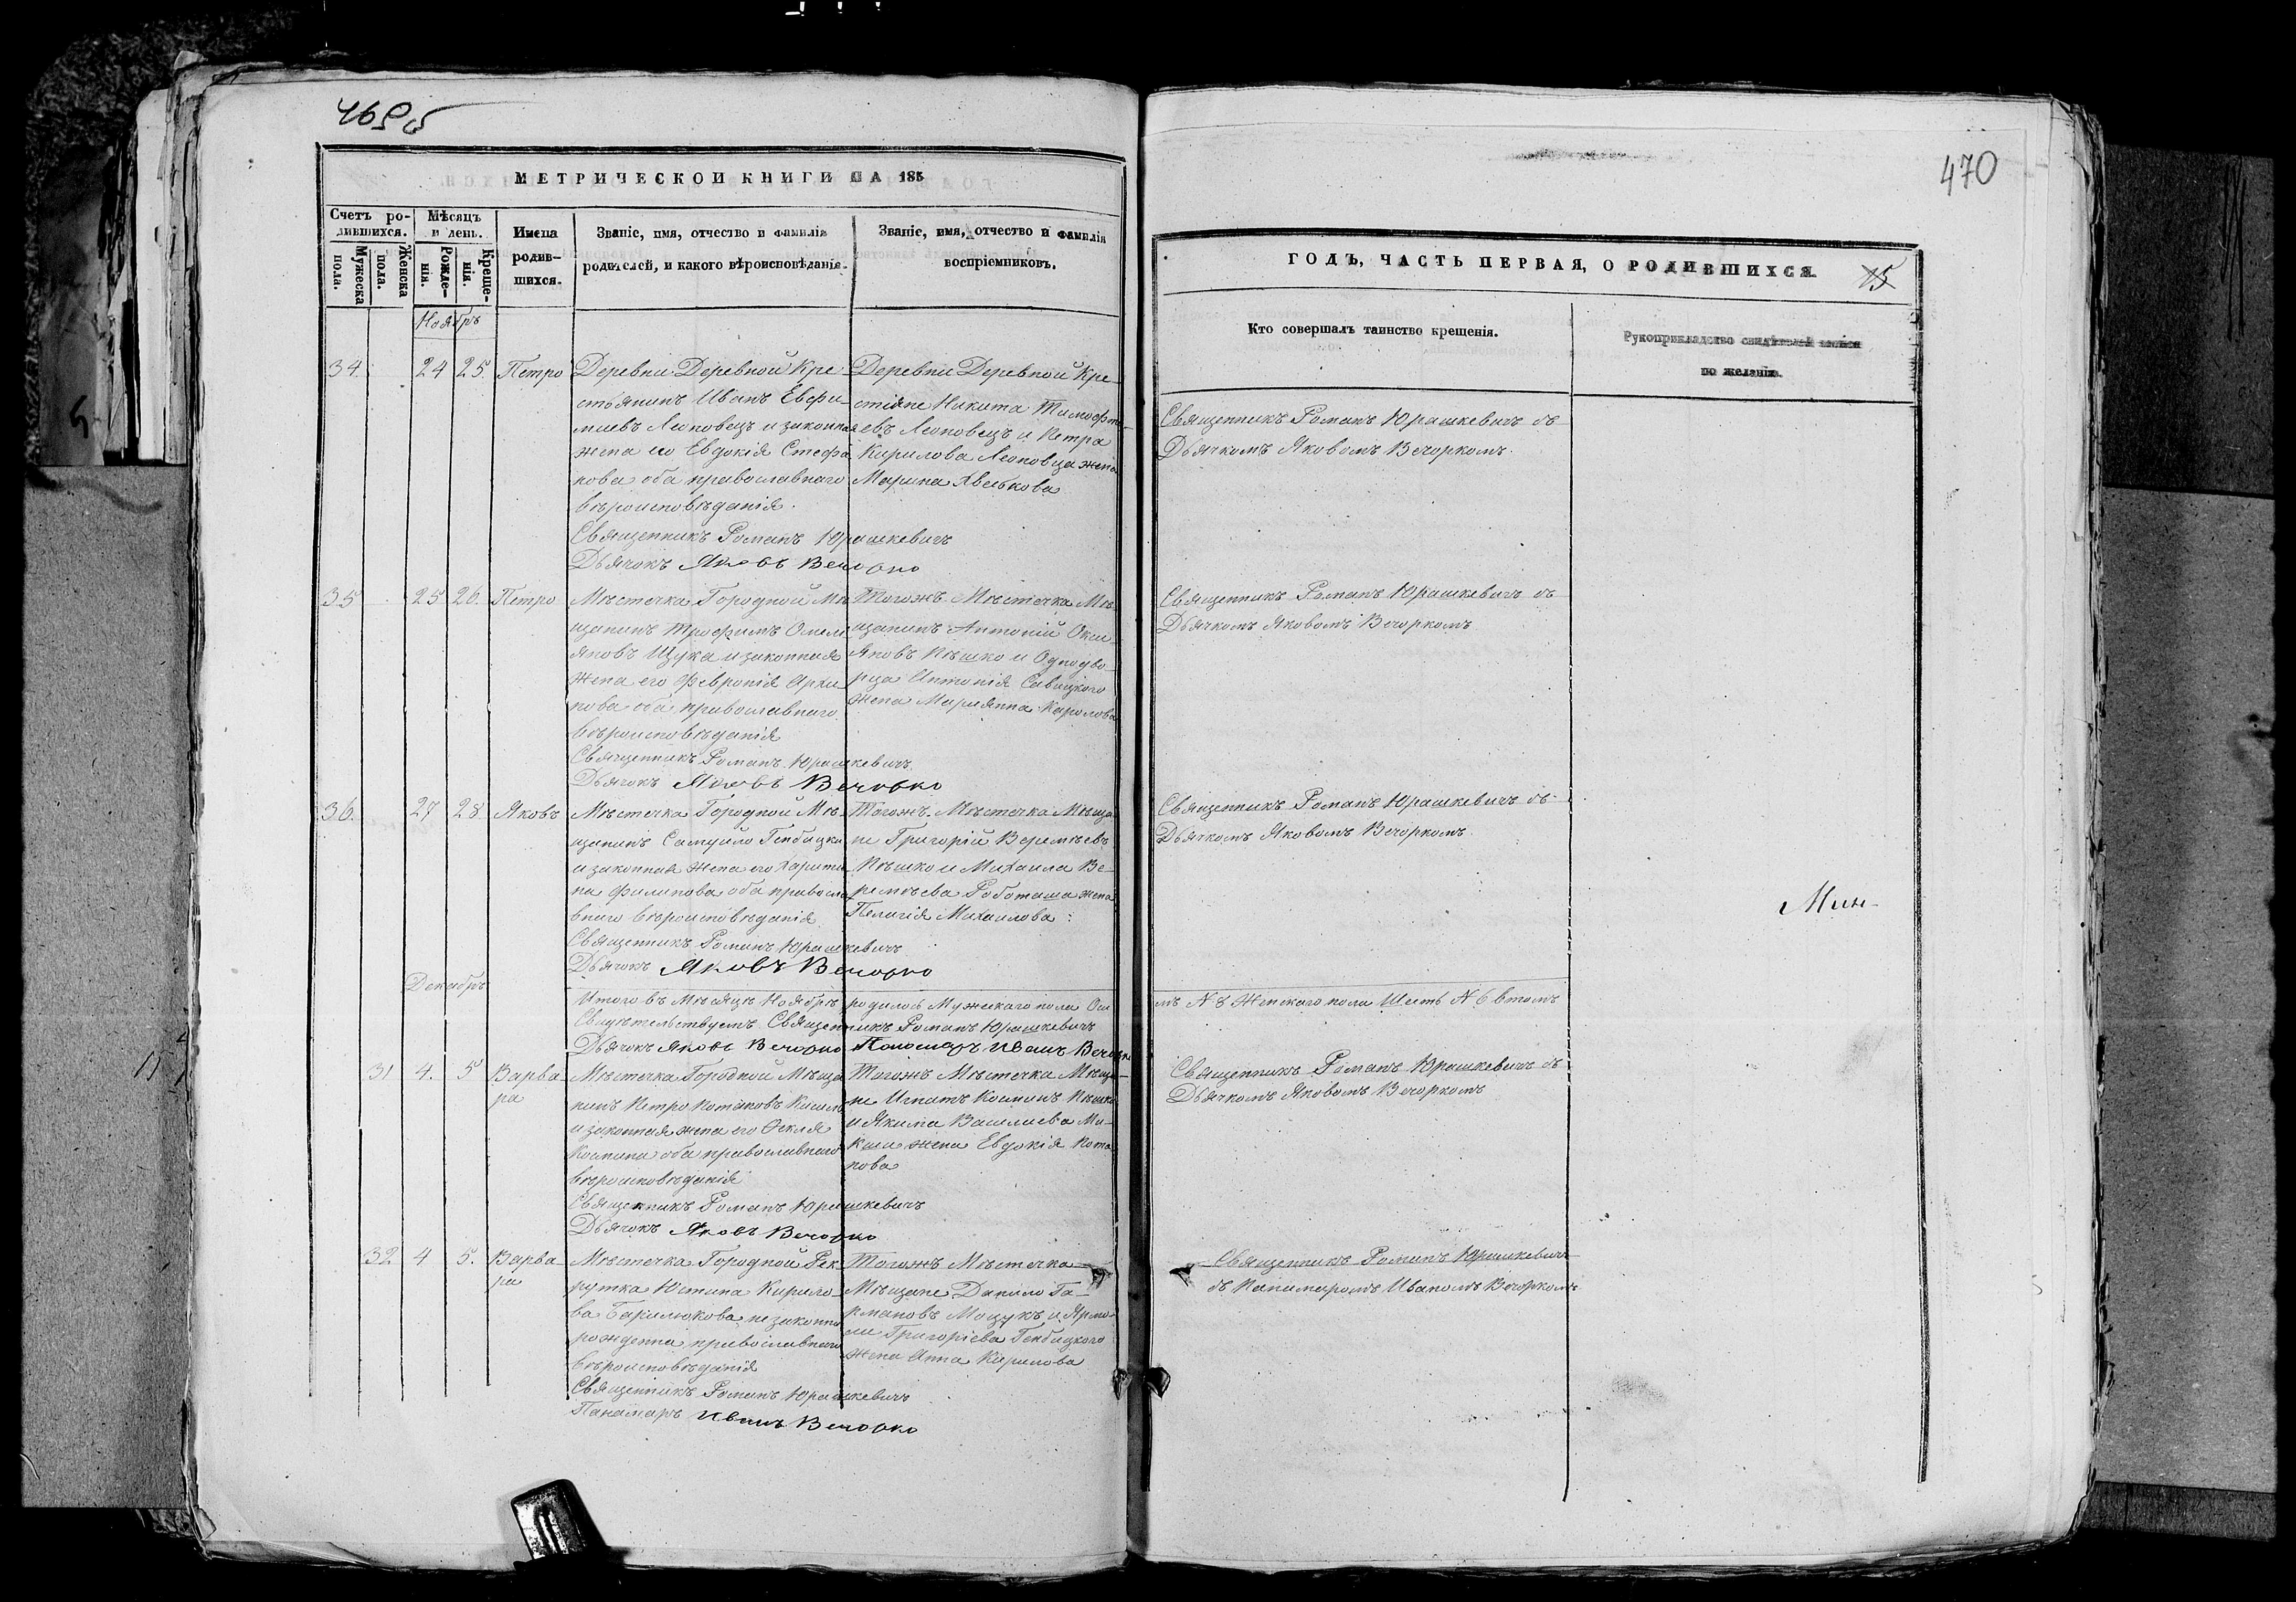 469 об
МЕТРИЧЕСКОЙ КНИГИ НА 185
Счетъ ро-
дившихся.
Мѣсяцъ
и день.
Имена
родив-
шихся.
Званіе, имя, отчество и фамилія
родителей, и какого вѣроисповѣданія.
Званіе, имя, отчество и фамилія
воспріемниковъ.
Мужеска
пола.
Женска
пола.
Рожде-
нія.
Креще-
нія.
Ноябрь
34.
24
25.
Петро
Деревни Деревной Кре
стьянинъ Иванъ Евфи-
міевъ Леоновецъ и законная
жена его Евдокія Стефа
нова оба православнаго
вѣроисповѣданія.
Священникъ Романъ Юрашкевичъ
Дьячокъ Яковъ Вечорко
Деревни Деревной Кре-
стіяне Никита Тимофѣ-
евъ Леоновецъ и Петра
Кирилова Леоновца жена
Марина
35
25
26.
Петро
Мѣстечка Городной Мѣ
щанинъ Трофимъ Омел
яновъ Щука и законная
жена его Февронія Архи
пова оба православнаго
вѣроисповѣданія
Священникъ Романъ Юрашкевичъ
Дьячокъ Яковъ Вечорко
Тогожъ Мѣстечка Мѣ
щанинъ Антоній
яновъ Пѣшко и Однодво-
рца Антонія Савицкого
жена Маріянна Каролова
36.
27
28
Яковъ
Мѣстечка Городной Мѣ-
щанинъ Самуйло Генбицки
и законная жена его Харити
на Филипова оба правосла
внаго вѣроисповѣданія
Священникъ Романъ Юрашкевичъ
Дьячокъ Яковъ Вечорко
Тогожъ Мѣстечка Мѣща
не Григорій Веремѣевъ
Пѣшко и Михаила Ве-
ремѣева Роботаша жена
Пелагія Михаилова:
Декабрь
Итого въ Мѣсяцѣ Ноябрѣ родилось Мужескаго пола Ос
Свидѣтельствуемъ Священникъ Романъ Юрашкевичъ
Дьячокъ Яковъ Вечорко Пономарь Иванъ Вечорко
31
4.
5
Варва-
ра
Мѣстечка Городной Мѣща
нинъ Петро Потаповъ
и законная жена его Фекла
Космина оба православнаго
вѣроисповѣданія
Священникъ Романъ Юрашкевичъ
Дьячокъ Яковъ Вечорко
Тогожъ Мѣстечка Мѣща-
не Игнатъ Косминъ Пѣшко
и Якима Василиева Ми-
жена Евдокія Пота
пова
32
4
5.
Варва
ра
Мѣстечка Городной Рек
рутка Юстина Кирило
ва Барилюкова незаконно
рожденна православнаго
вѣроисповѣданія
Священникъ Романъ Юрашкевичъ
Панамарь Иванъ Вечорко
Тогожъ Мѣстечка
Мѣщане Данило Га-
рмановъ Моцукъ и Ярмо-
ли Григоріева Генбицкого
жена Анна Кирилова
470
ГОДЪ, ЧАСТЬ ПЕРВАЯ, О РОДИВШИХСЯ.
15
Кто совершалъ таинство крещенія.
Рукоприкладство свидѣтелей записи
по желанію.
Священникъ Романъ Юрашкевичъ съ
Дьячкомъ Яковомъ Вечоркомъ.
Священникъ Романъ Юрашкевичъ съ
Дьячкомъ Яковомъ Вечоркомъ
Священникъ Романъ Юрашкевичъ съ
Дьячкомъ Яковомъ Вечоркомъ.
Мин-
мъ N 8 Женскаго пола Шесть N 6 втомъ
Священникъ Романъ Юрашкевичъ съ
Дьячкомъ Яковомъ Вечоркомъ
Священникъ Романъ Юрашкевичъ
съ Панамаромъ Иваномъ Вечоркомъ